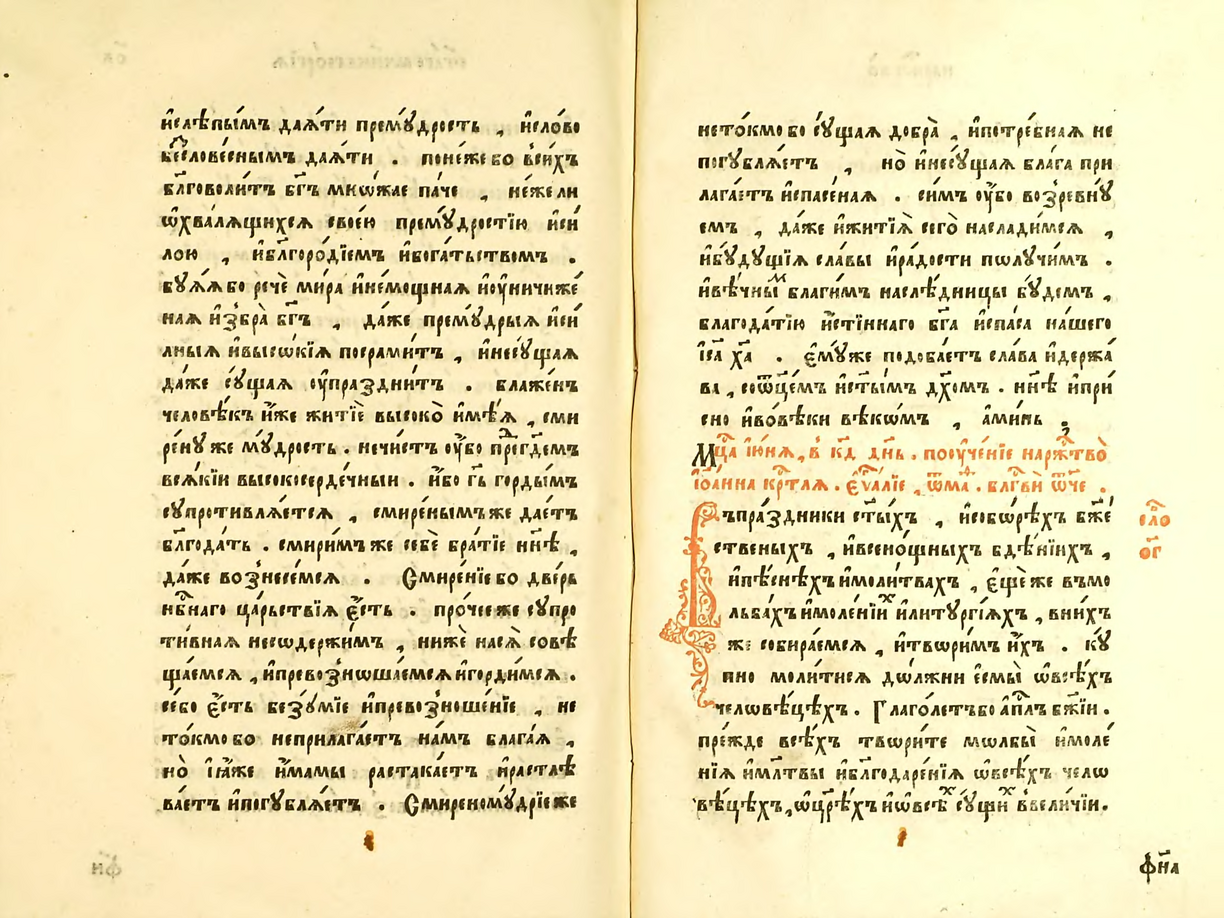 и҆слѣпы́мъ даѧ́ти премꙋ́дрость , и҆сло́во
бесслове́снымъ даѧ́ти . поне́же бо всѣ́хъ
бл҃говоли́тъ бг҃ъ мнѡ́жае па́че , не́жели
ѡ҆хвалѧ́щихсѧ свое́ю премꙋ́дростїю и҆си́
лою , и҆бл҃горо́дїемъ и҆бога́тьствомъ .
бꙋѧ̑ѧ бо речѐ ми́ра и҆не́мощнаѧ и҆оу҆ничиже́
наѧ и҆збра̀ бг҃ъ , да́же премꙋ́дрыѧ и҆си́
лныѧ и҆высѡ́кїѧ посрами́тъ , и҆несꙋ́щаѧ
да́же сꙋ́щаѧ оу҆праздни́тъ . блаже́нъ
человѣ́къ и҆́же житїѐ высоко̀ и҆мѣ́ѧ , сми
ре́нꙋ же мꙋ́дрость . нечи́стъ оу҆́бо пре́дгдⷭ҇емъ
всѧ́кїи высокосерде́чныи . и҆́бо гь҃ го́рдымъ
сꙋпротивлѧ́етсѧ , смире́нымъ же дае́тъ
бл҃года́ть . смири́мъ же себѐ бра́тїе нн҃ѣ ,
да́же вознесе́мсѧ . Смире́нїе бо две́рь
нбⷭ҇наго ца́рьствїѧ є҆́сть . про́чее же сꙋпро
ти́внаѧ несѡдержи́мъ , нижѐ насѧ̀ совѣ
ща́емсѧ , и҆превознѡша́емсѧ и҆горди́мсѧ .
се́бо є҆́сть безꙋ́мїе и҆превозноше́нїе , не
то́кмо бо неприлага́етъ на́мъ блага́ѧ ,
но̀ і҆ѧ҆́же и҆́мамы растака́етъ и҆растлѣ
ва́етъ и҆погꙋблѧ́етъ . Смиреномꙋ́дрїе же
нето́кмо бо сꙋ́щаѧ добра̀ , и҆потре́бнаѧ не
погꙋблѧ́етъ , но̀ и҆несꙋ́щаѧ бла́га при
лага́етъ и҆спасе́наѧ . си́мъ оу҆́бо возревнꙋ́
емъ , да́же и҆житїѧ̀ сего̀ наслади́мсѧ ,
и҆бꙋ́дꙋщїѧ сла́вы и҆ра́дости пѡлꙋ́чимъ .
и҆вѣ́чныⷨ благи́мъ наслѣ́дницы бꙋ́демъ ,
благода́тїю и҆́стіннаго бг҃а и҆спа́са на́шего
і҆сⷭ҇а хⷭ҇а . є҆мꙋ́же подоба́етъ сла́ва и҆держа́
ва , соѡ҆ц҃е́мъ и҆ст҃ы́мъ дх҃омъ . нн҃ѣ и҆при́
сно и҆вовѣ́ки вѣкѡ́мъ , а҆ми́нь
Мцⷭ҇а і҆ю́нѧ , в҃ к҃д дн҃ь . поꙋче́нїе нарⷤ҇тво̀
і҆ѡ҆а́нна крⷭ҇тлѧ . є҆ѵⷢ҇а́лїе , ѿма . бл҃гви̑ ѿче .
Въпра́здники ст҃ы́хъ , и҆собѡ́рѣхъ бж҃е́
ственыхъ , и҆всено́щныхъ бдѣ́нїихъ ,
и҆пѣ́снѣхъ и҆моли́твахъ , є҆ще́ же въмо
льба́хъ и҆моле́нїиⷯ и҆литꙋргі́ѧхъ , вни́хъ
же собира́емсѧ , и҆твори́мъ и҆́хъ . кꙋ
пно моли́тисѧ дѡ́лжни есмы̀ ѡ҆всѣ́хъ
челѡвѣ́цѣхъ . Глаго́летъ бо а҆пⷭ҇лъ бж҃їи .
пре́жде всѣ́хъ твори́те мѡлбы̀ и҆моле́
нїѧ и҆мл҃твы и҆благодаре́нїѧ ѡ҆всѣ́хъ челѡ
вѣ́цѣхъ , ѡ҆цр҃ѣ́хъ и҆ѡ҆всѣⷯ сꙋ́щиⷯ вᲂвели́чїи .
сло
о҃г
фн҃а